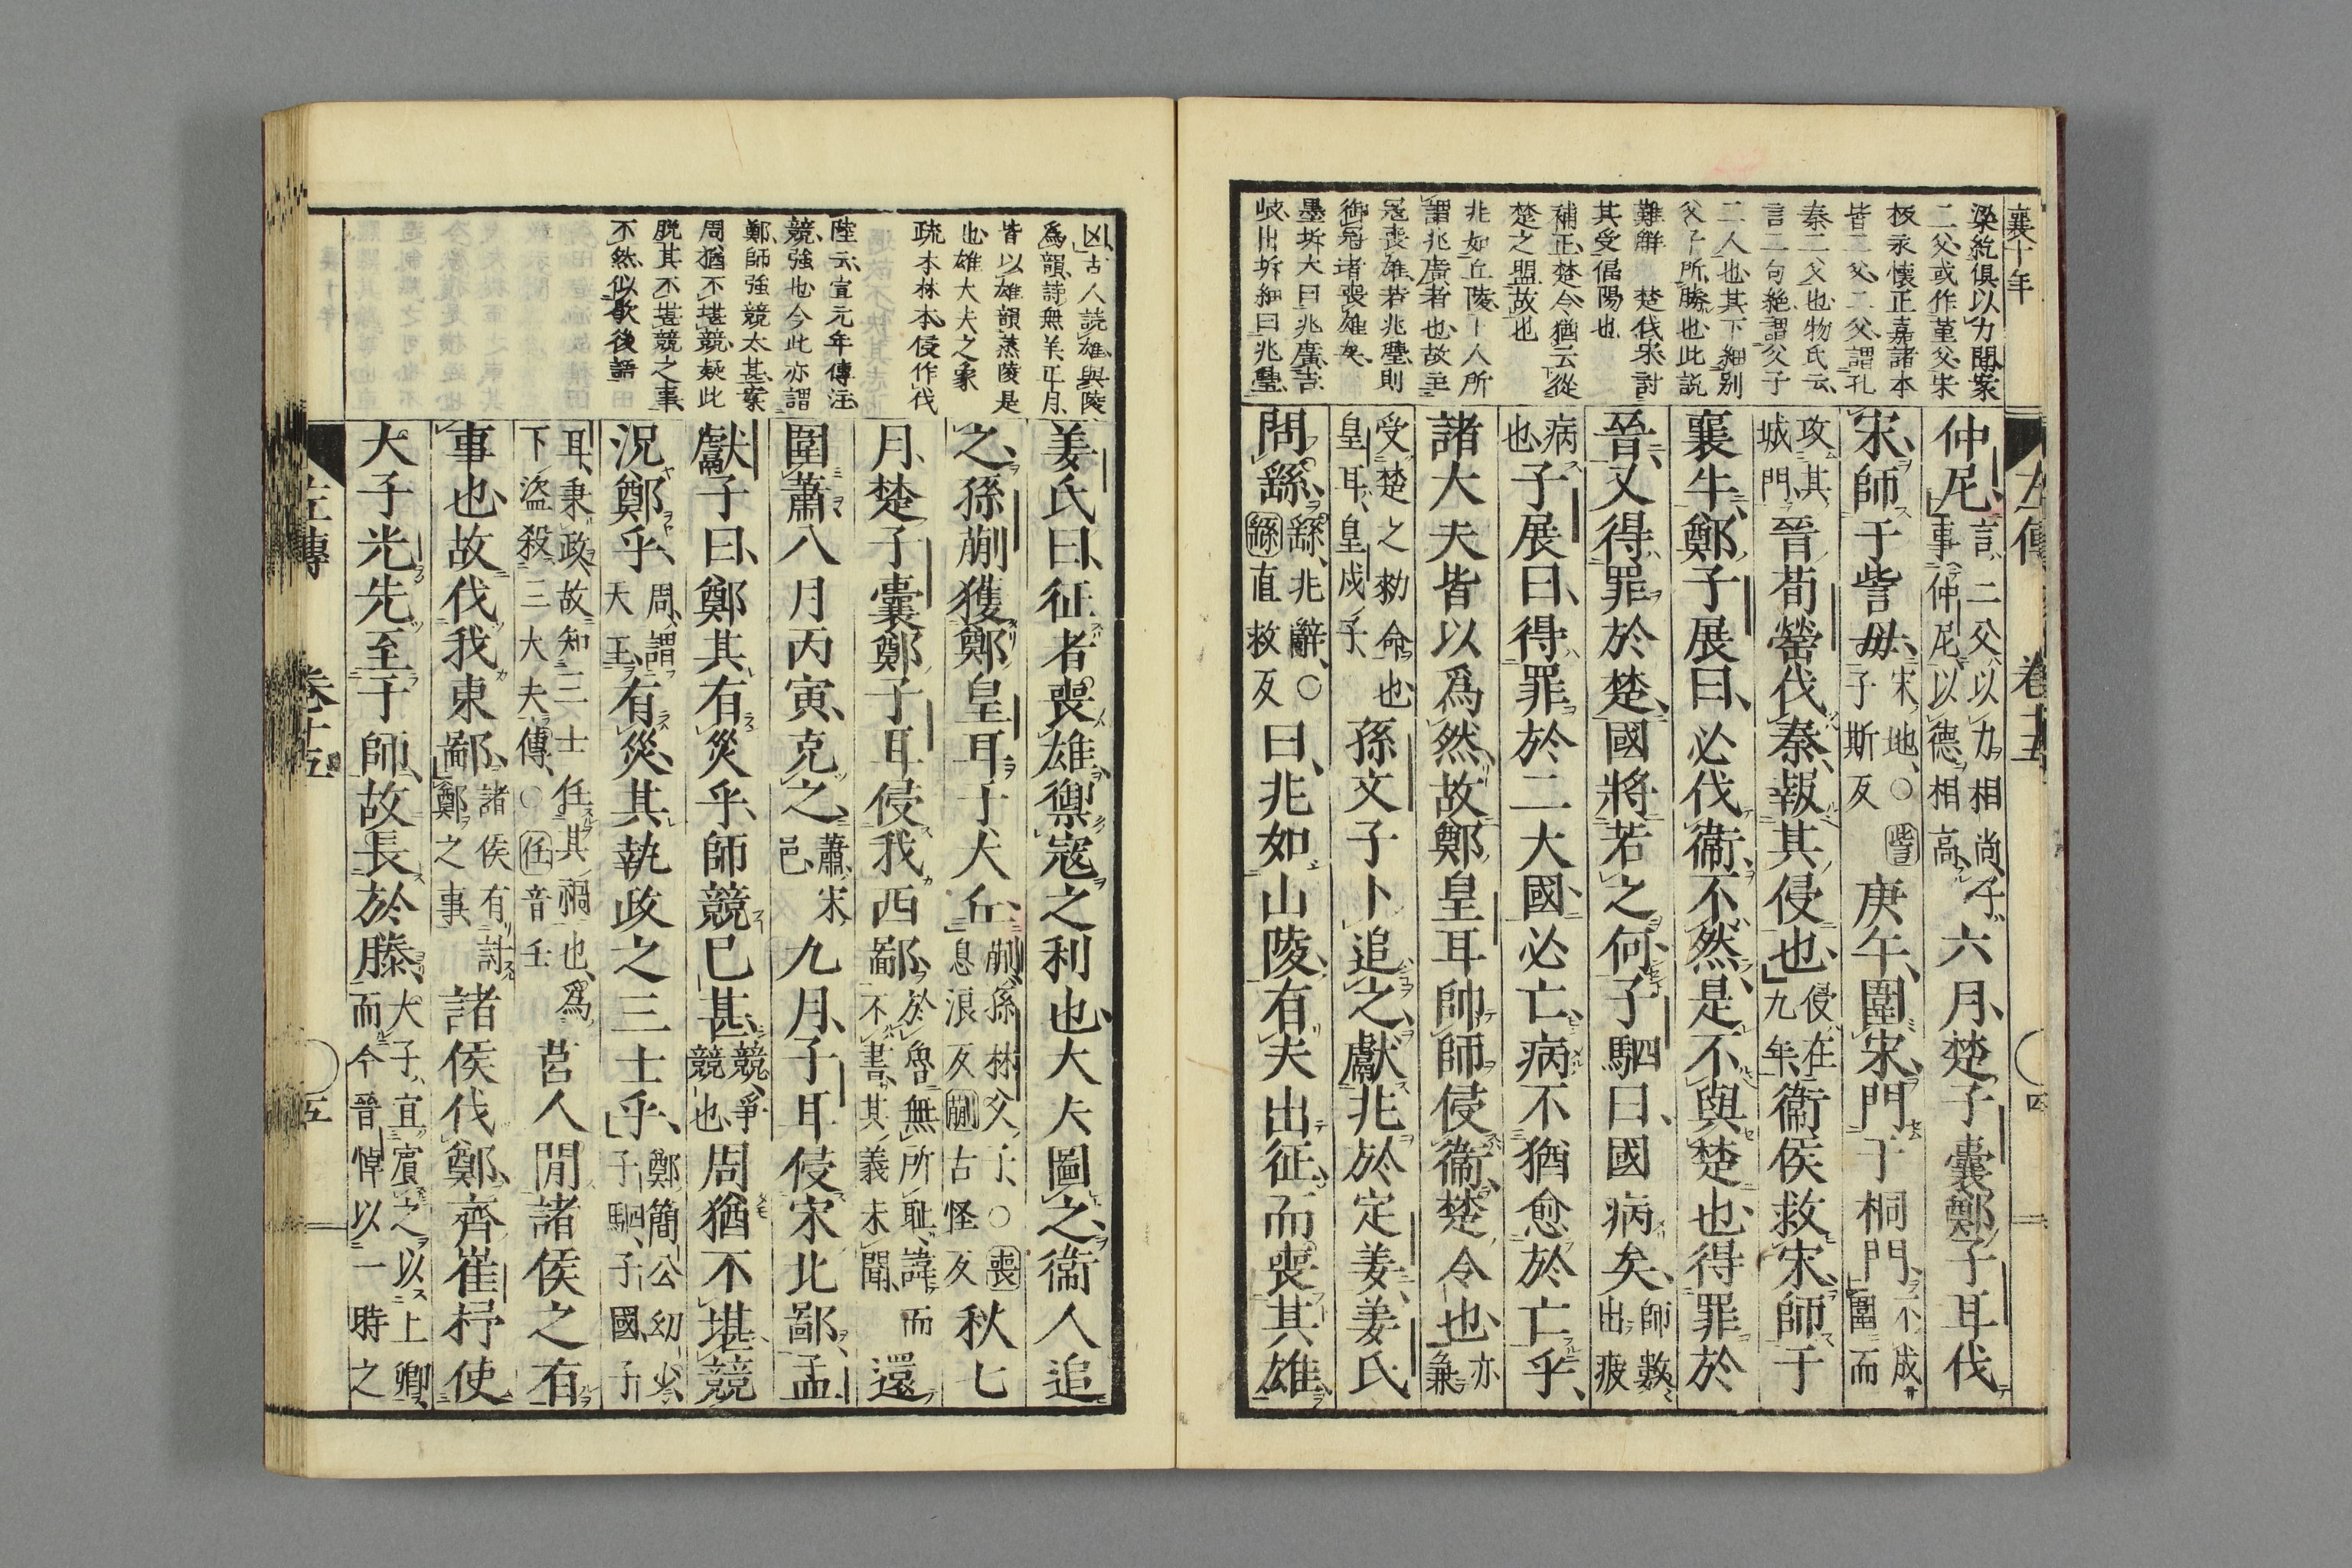 襄十年
梁紇俱以力聞案
二父或作菫父宋
板永懷正嘉諸本
皆二父二父謂孔
秦二父也物氏云
言二句絶謂父子
二人也其下細別
父子所勝也此説
難解 楚伐宋討
其受偪陽也
補正楚令猶云從
楚之盟故也
兆如丘陵卜人所
謂兆廣者也故主
冦喪雄若兆壘則
御冦者喪雄矣
墨坼大曰兆廣吉
岐出坼細曰兆璺
左傳 卷十五 四
仲尼言二父以力相尚子事仲尼以德相高六月楚子囊鄭子耳伐
宋師于訾毋宋地○訾子斯反庚午圍宋門于桐門不成圍而
攻其城門晉荀罃伐秦報其侵也侵在九年衞侯救宋師于
襄牛鄭子展曰必伐衞不然是不與楚也得罪於
晉又得罪於楚國將若之何子駟曰國病矣師數出疲
病也子展曰得罪於二大國必亡病不猶愈於亡乎
諸大夫皆以爲然故鄭皇耳帥師侵衞楚令也亦兼
受楚之勑命也皇耳皇戌子孫文子卜追之獻兆於定姜姜氏
問繇繇兆辭○繇直救反曰兆如山陵有夫出征而喪其雄
凶古人説雄與陵
爲韻詩無羊正月
皆以雄韻蒸陵是
也雄大夫之象
疏本林本侵作伐
陸云宣元年傳注
競強也今此亦謂
鄭師強競太甚案
周猶不堪競疑此
脱其不堪競之事
不然似歇後語
姜氏曰征者喪雄禦寇之利也大夫圖之衞人追
之孫蒯獲鄭皇耳于犬丘蒯孫林父子○喪息浪反蒯古怪反秋七
月楚子囊鄭子耳侵我西鄙於魯無所耻諱而不書其義未聞還
圍蕭八月丙寅克之蕭宋邑九月子耳侵宋北鄙孟
獻子曰鄭其有災乎師競已甚競爭競也周猶不堪競
況鄭乎周謂天王有災其執政之三士乎鄭簡公幼少子駟子國子
耳秉政故知三士任其禍也爲下盜殺三大夫傳○任音壬莒人閒諸侯之有
事也故伐我東鄙諸侯有討鄭之事諸侯伐鄭齊崔杼使
大子光先至于師故長於滕大子宜賓之以上卿而今晉悼以一時之
左傳 卷十五 五